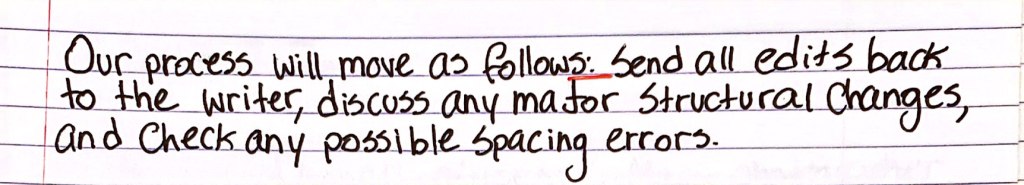 Our process will move as follows: Send all edits back
to the writer, discuss any major structural changes,
and check any possible spacing errors.